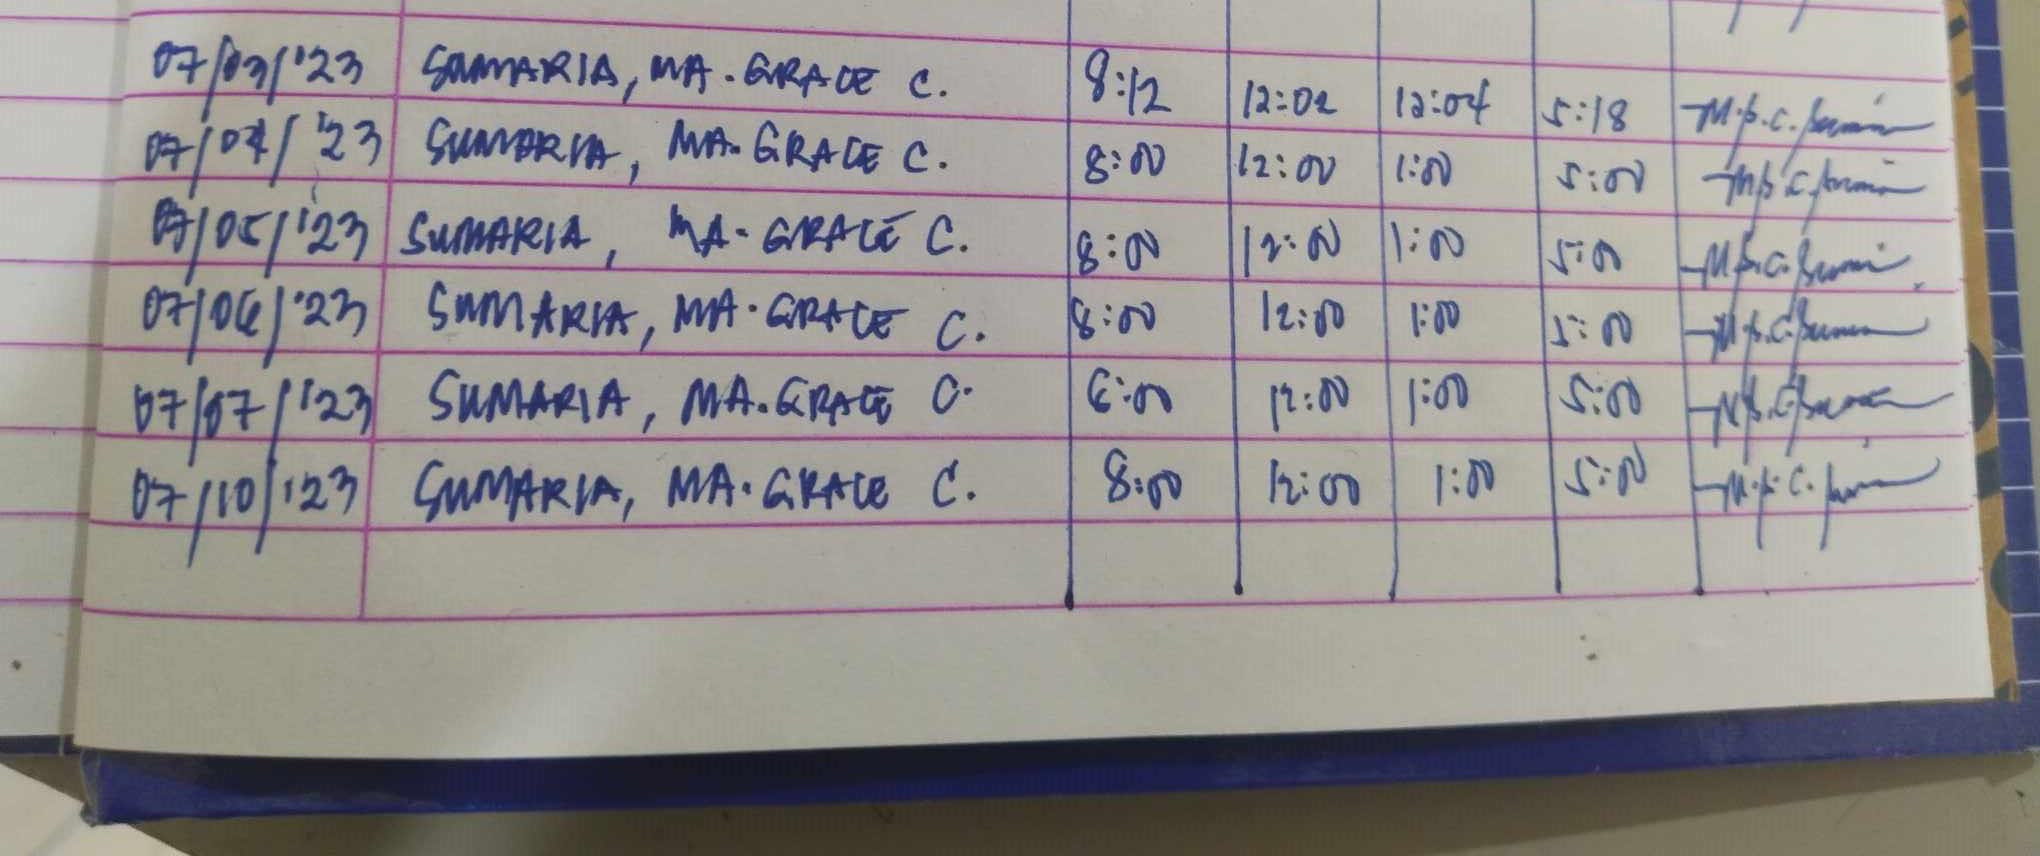 07/03/'23 SUMARIA, MA. GRACE C. 8:12 12:02 12:04 5:18
07/04/'23 SUMARIA, MA. GRACE C. 8:00 12:00 1:00 5:00
07/05/'23 SUMARIA, MA. GRACE C. 8:00 12:00 1:00 5:00
07/06/'23 SUMARIA, MA. GRACE C. 8:00 12:00 1:00 5:00
07/07/'23 SUMARIA, MA. GRACE C. 8:00 12:00 1:00 5:00
07/10/'23 SUMARIA, MA. GRACE C. 8:00 12:00 1:00 5:00